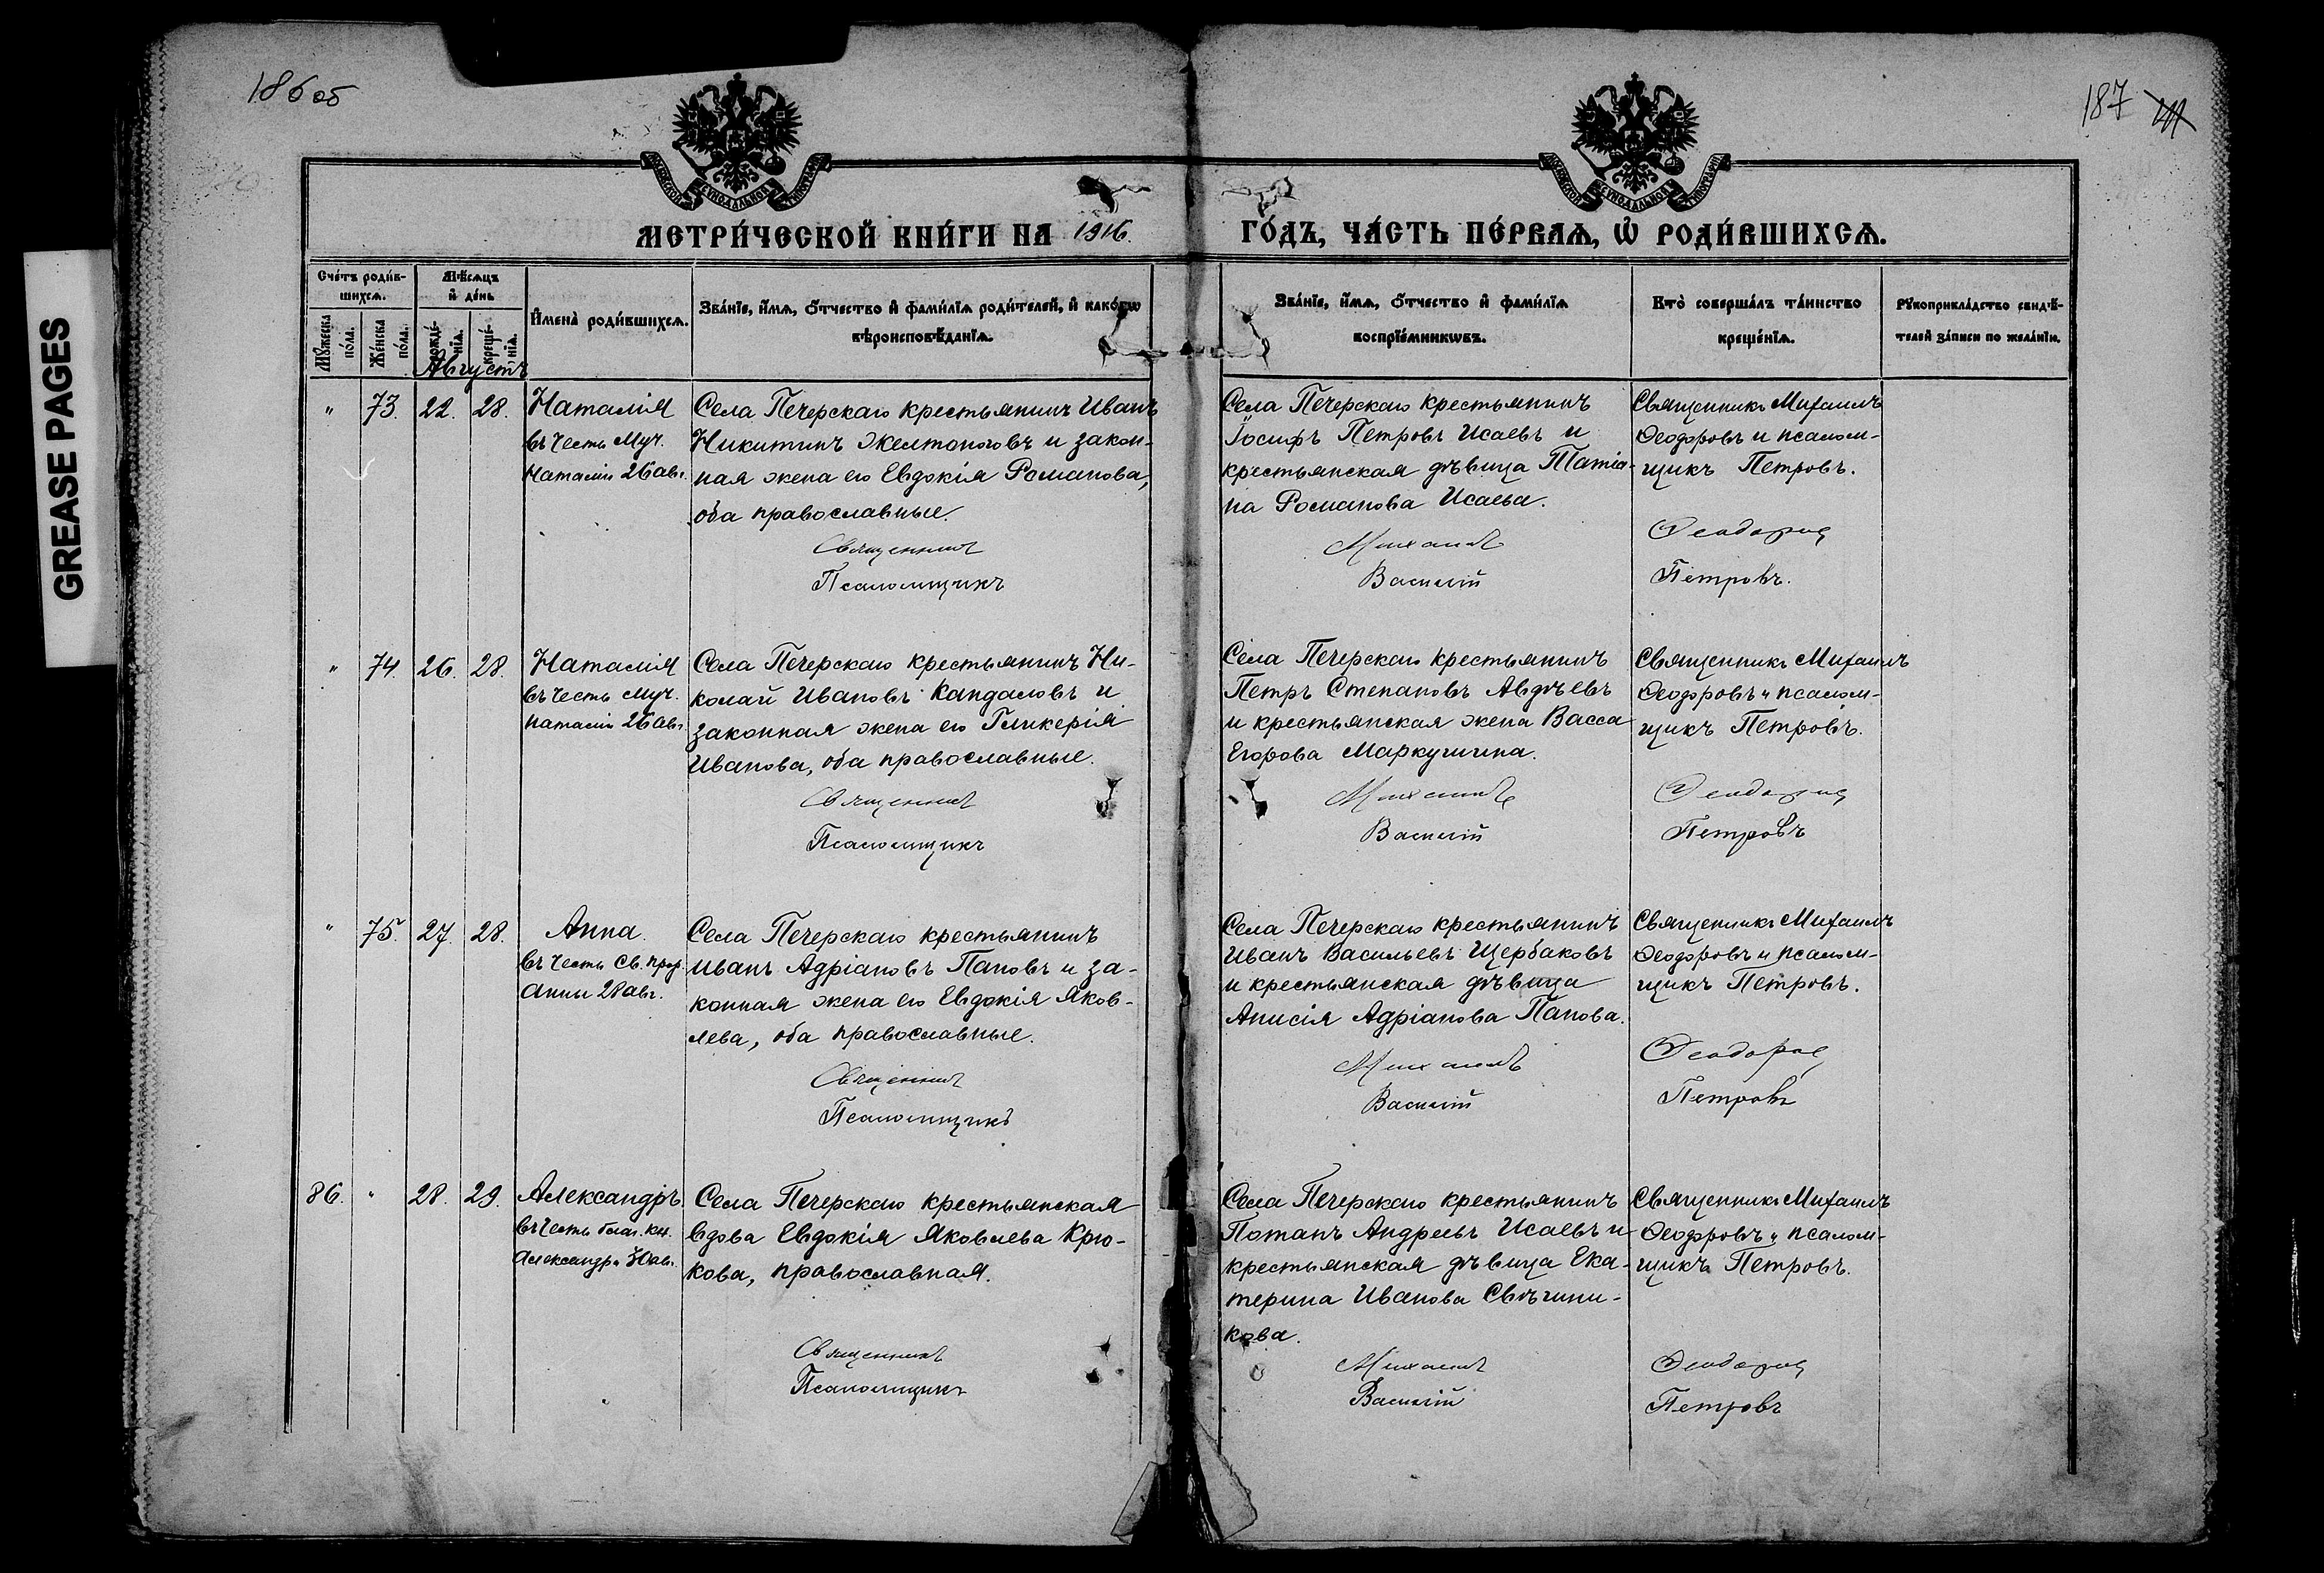 186 об
187
GREASE PAGES
МЕТРИ́ЧЕСКОЙ КНИ́ГИ НА 1916.
ГО́ДЪ, ЧА́СТЬ ПЕ́РВАѦ, Ѡ҆ РОДИ́ВШИХСѦ.
Сче́тъ роди́в-
шихсѧ.
Мꙋ́жеска по́ла.
Же́нска по́ла.
Мѣ́сѧцъ
и҆ де́нь
рожде́-нїѧ.
креще́-нїѧ.
И҆мена̀ роди́вшихсѧ.
Зва́нїе, и҆́мѧ, ѻ҆́тчество и҆ фами́лїѧ роди́телей, и҆ како́гѡ
вѣроисповѣ́данїѧ.
Зва́нїе, и҆́мѧ, ѻ҆́тчество и҆ фами́лїѧ
воспрїе́мникѡвъ.
Кто̀ соверша́лъ та́инство
креще́нїѧ.
Рꙋкоприкла́дство свидѣ́-
телей за́писи по жела́нїю.
Августъ
" 73. 22. 28.
Наталія
въ честь муч.
Наталіи 26 авг.
Села Печерскаго крестьянинъ Иванъ
Никитинъ Желтоноговъ и закон-
ная жена его Евдокія Романова,
оба православные.
Священникъ
Псаломщикъ
Села Печерскаго крестьянинъ
Іосифъ Петровъ Исаевъ и
крестьянская дѣвица Татіа-
на Романова Исаева.
Михаилъ
Василій
Священникъ Михаилъ
Ѳеодоровъ и псалом-
щикъ Петровъ.
Ѳеодоровъ
Петровъ.
" 74. 26. 28.
Наталія
въ честь муч.
Наталіи 26 авг.
Села Печерскаго крестьянинъ Ни-
колай Ивановъ Кандаловъ и
законная жена его Гликерія
Иванова, оба православные.
Священникъ
Псаломщикъ
Села Печерскаго крестьянинъ
Петръ Степановъ Авдѣевъ
и крестьянская жена Васса
Егорова Маркушина.
Михаилъ
Василій
Священникъ Михаилъ
Ѳеодоровъ и псалом-
щикъ Петровъ.
Ѳеодоровъ
Петровъ
" 75. 27. 28.
Анна
въ честь Св. прор.
Анны 28 авг.
Села Печерскаго крестьянинъ
Иванъ Адріановъ Пановъ и за-
конная жена его Евдокія Яков-
лева, оба православные.
Священникъ
Псаломщикъ
Села Печерскаго крестьянинъ
Иванъ Васильевъ Щербаковъ
и крестьянская дѣвица
Анисія Адріанова Панова.
Михаилъ
Василій
Священникъ Михаилъ
Ѳеодоровъ и псалом-
щикъ Петровъ.
Ѳеодоровъ
Петровъ
86. " 28. 29.
Александръ
въ честь благ. кн.
Александра 30 авг.
Села Печерскаго крестьянская
вдова Евдокія Яковлева Крю-
кова, православная.
Священникъ
Псаломщикъ
Села Печерскаго крестьянинъ
Потапъ Андреевъ Исаевъ и
крестьянская дѣвица Ека-
терина Иванова Свѣчни-
кова.
Михаилъ
Василій
Священникъ Михаилъ
Ѳеодоровъ и псалом-
щикъ Петровъ.
Ѳеодоровъ
Петровъ